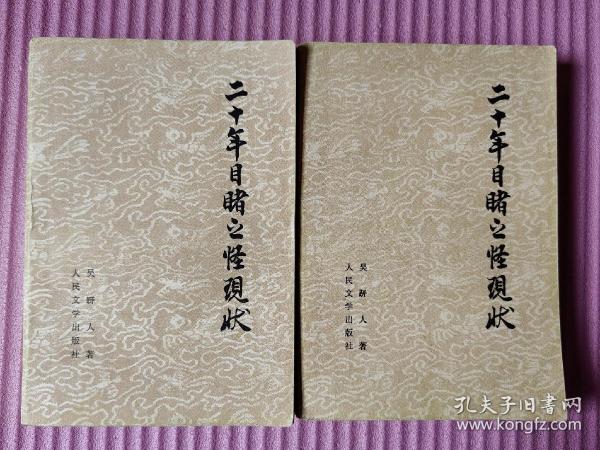 二十年目睹之怪現狀
吴趼人著
人民文学出版社
二十年目睹之怪現狀
吴趼人著
人民文学出版社
孔夫子旧書网
www.kongfz.com